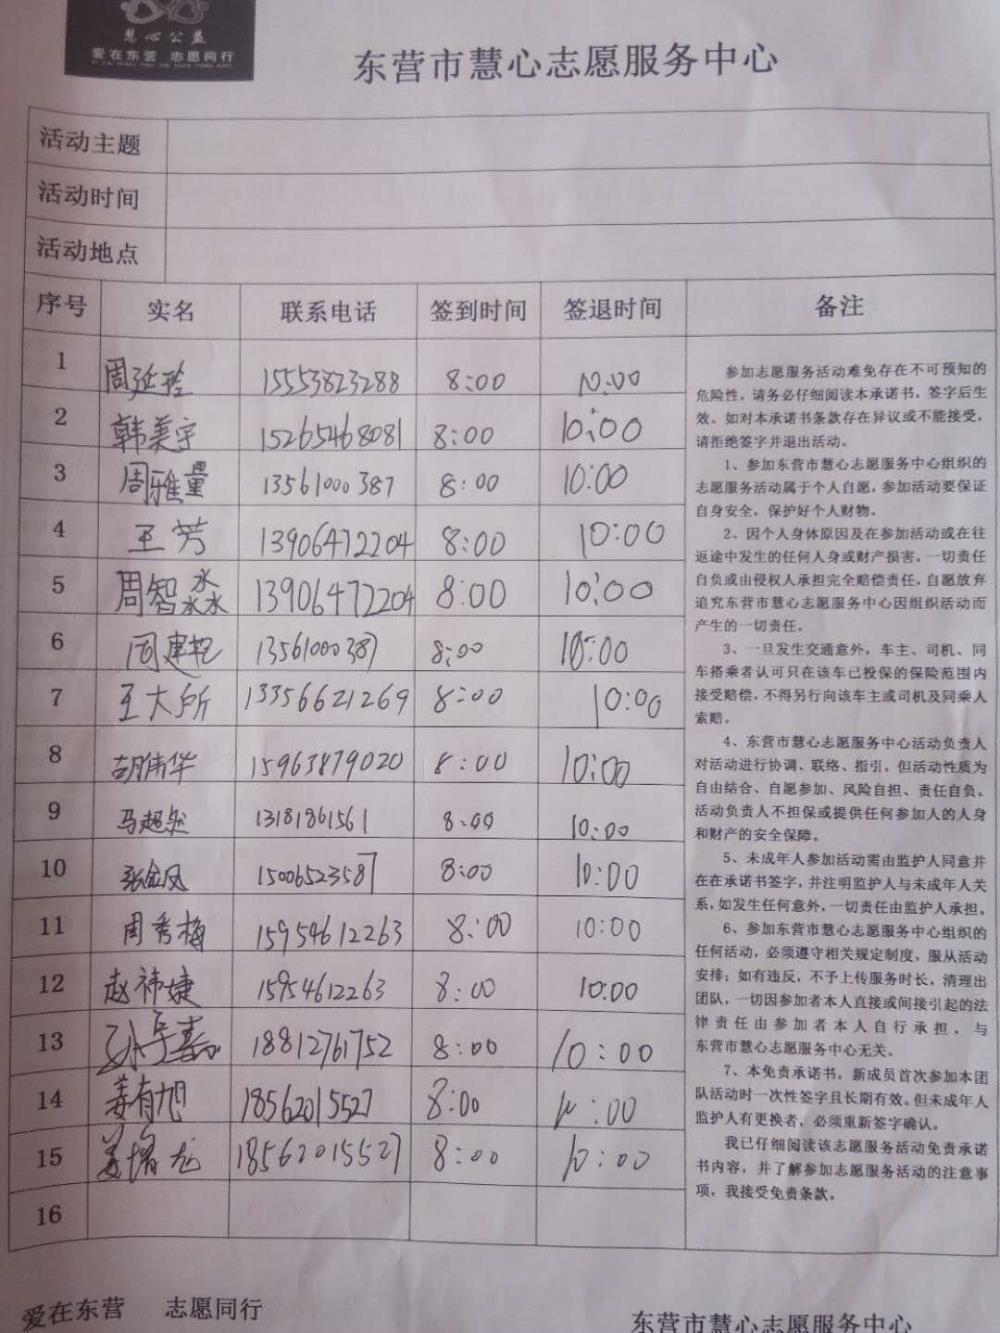 慧心公益
爱在东营 志愿同行
东营市慧心志愿服务中心
活动主题
活动时间
活动地点
序号 实名 联系电话 签到时间 签退时间 备注
1 周延玲 15553823288 8:00 10:00
2 韩美宇 15265468081 8:00 10:00
3 周雅量 13561000387 8:00 10:00
4 王芳 13906472204 8:00 10:00
5 周智淼 13906472204 8:00 10:00
6 周建乾 13561000387 8:00 10:00
7 王大所 13356621269 8:00 10:00
8 胡伟华 15963879020 8:00 10:00
9 马超然 13181861561 8:00 10:00
10 张金凤 15006523587 8:00 10:00
11 周秀梅 15954612263 8:00 10:00
12 赵祎婕 15954612263 8:00 10:00
13 18812761752 8:00 10:00
14 姜有旭 18562015527 8:00 10:00
15 18562015527 8:00 10:00
16
参加志愿服务活动难免存在不可预知的
危险性，请务必仔细阅读本承诺书，签字后生
效。如对本承诺书条款存在异议或不能接受，
请拒绝签字并退出活动。
1、参加东营市慧心志愿服务中心组织的
志愿服务活动属于个人自愿，参加活动要保证
自身安全，保护好个人财物。
2、因个人身体原因及在参加活动或在往
返途中发生的任何人身或财产损害，一切责任
自负或由侵权人承担完全赔偿责任，自愿放弃
追究东营市慧心志愿服务中心因组织活动而
产生的一切责任。
3、一旦发生交通意外，车主、司机、同
车搭乘者认可只在该车已投保的保险范围内
接受赔偿，不得另行向该车主或司机及同乘人
索赔。
4、东营市慧心志愿服务中心活动负责人
对活动进行协调、联络、指引，但活动性质为
自由结合、自愿参加、风险自担、责任自负。
活动负责人不担保或提供任何参加人的人身
和财产的安全保障。
5、未成年人参加活动需由监护人同意并
在在承诺书签字，并注明监护人与未成年人关
系，如发生任何意外，一切责任由监护人承担。
6、参加东营市慧心志愿服务中心组织的
任何活动，必须遵守相关规定制度，服从活动
安排；如有违反，不予上传服务时长，清理出
团队，一切因参加者本人直接或间接引起的法
律责任由参加者本人自行承担，与
东营市慧心志愿服务中心无关。
7、本免责承诺书，新成员首次参加本团
队活动时一次性签字且长期有效。但未成年人
监护人有更换者，必须重新签字确认。
我已仔细阅读该志愿服务活动免责承诺
书内容，并了解参加志愿服务活动的注意事
项，我接受免责条款。
爱在东营 志愿同行
东营市慧心志愿服务中心